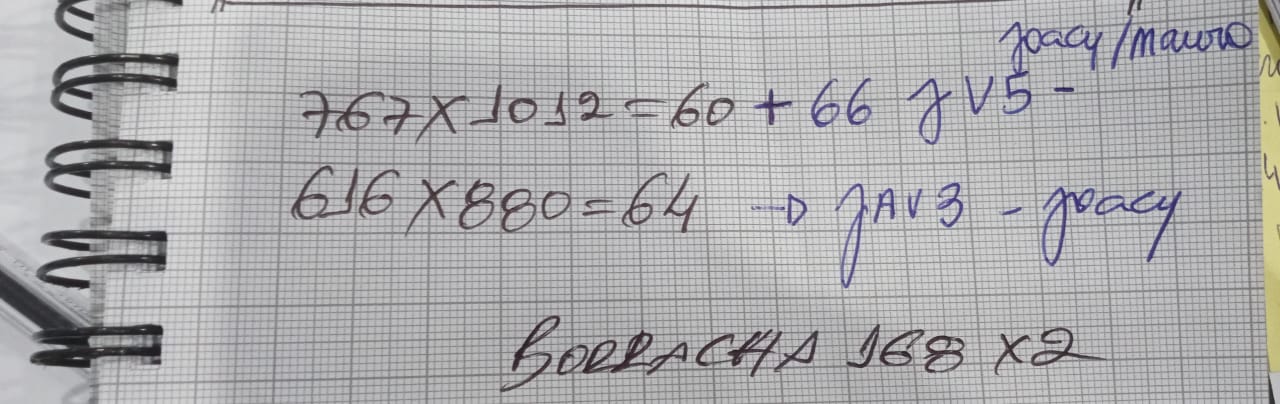 Joacy/Mauro
767X1012=60 + 66 JV5 -
616X880=64 → JAV3 - Joacy
BORRACHA 168 X2